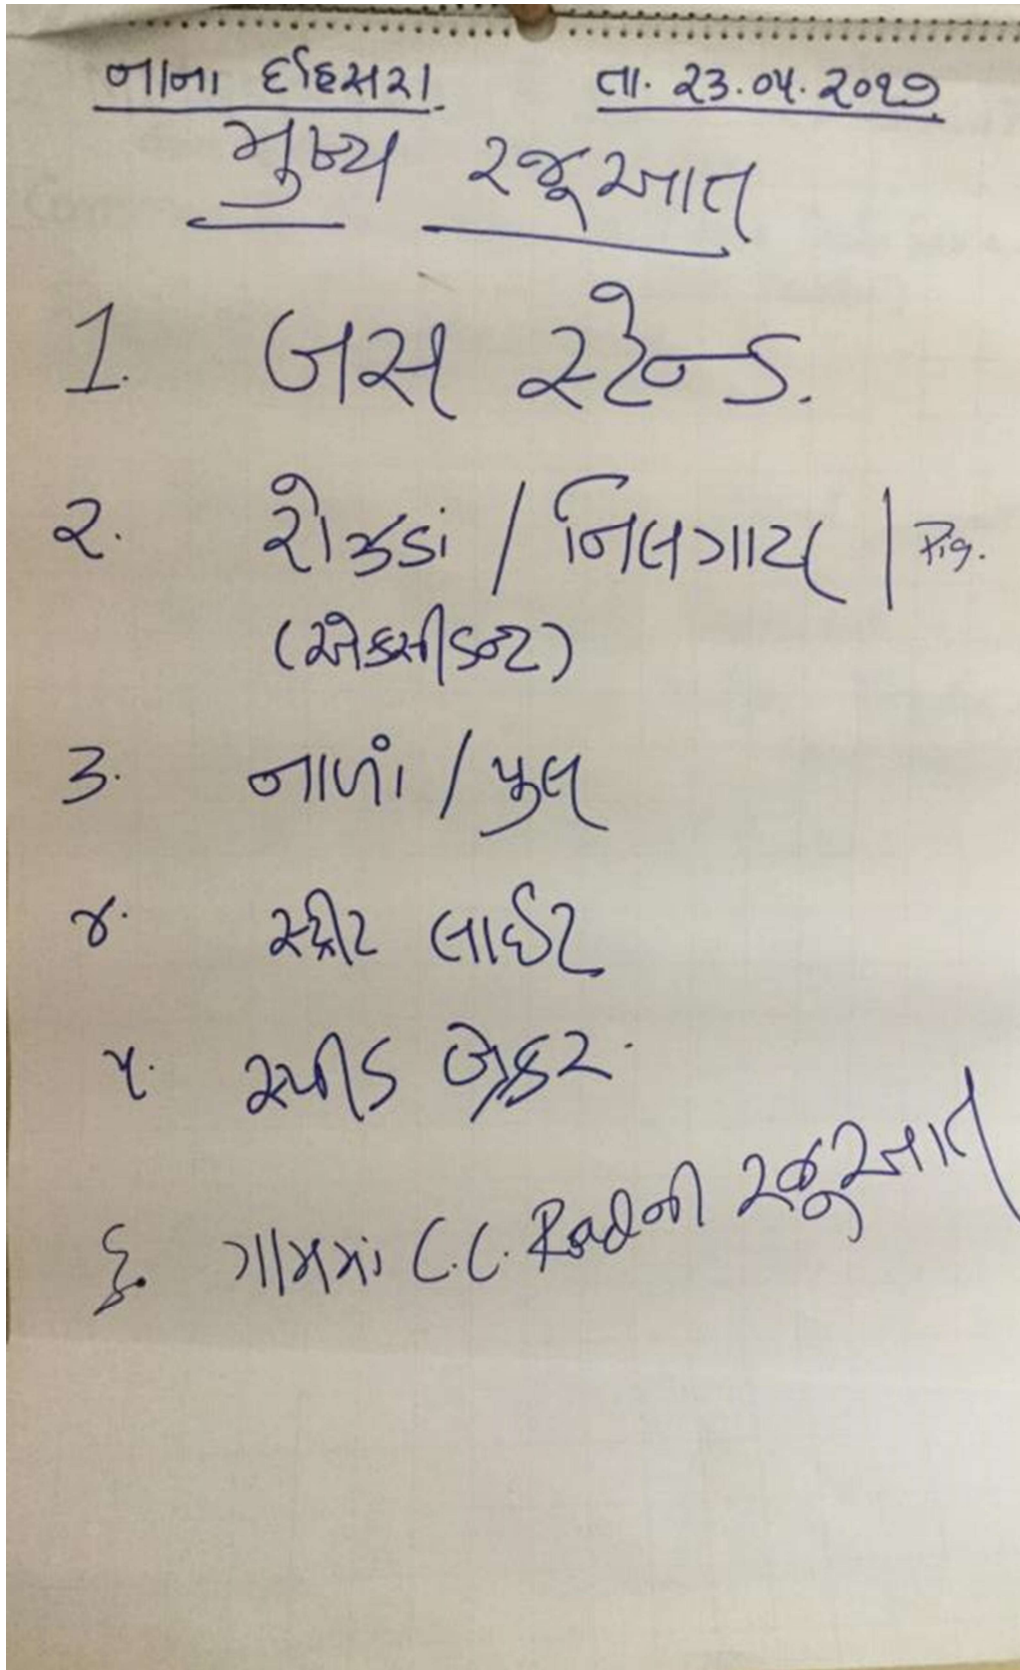 નાના ઈહિસરા તા. ૨૩.૦૫.૨૦૧૭
મુખ્ય રજૂઆત
1. બસ સ્ટેન્ડ.
૨. રોઝડાં / નિલગાય / Pig.
(એકસીડન્ટ)
૩. નાળાં / પુલ
૪. સ્ટ્રીટ લાઈટ
૫. સ્પીડ બ્રેકર.
૬. ગામમાં C.C. Roadની રજૂઆત